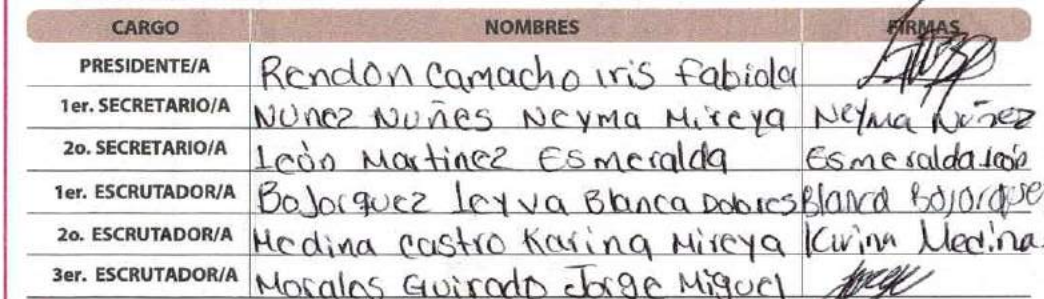 CARGO NOMBRES FIRMAS
PRESIDENTE/A Rendon Camacho Iris Fabiola
1er. SECRETARIO/A Nuñez Nuñes Neyma Mireya Neyma Nuñez
2o. SECRETARIO/A León Martinez Esmeralda Esmeralda León
1er. ESCRUTADOR/A Bojorquez Leyva Blanca Dolores Blanca Bojorquez
2o. ESCRUTADOR/A Medina Castro Karina Mireya Karina Medina
3er. ESCRUTADOR/A Morales Guirado Jorge Miguel